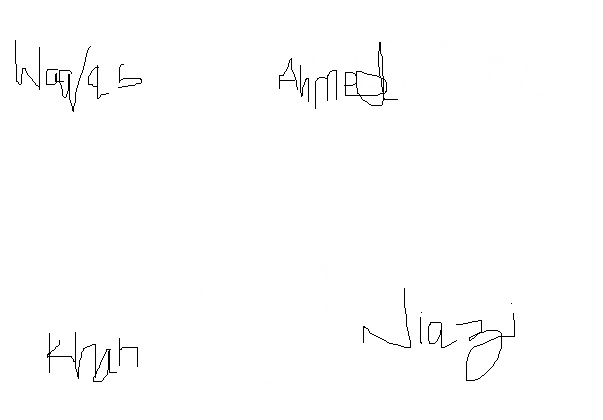 Waqas Ahmed
Khan Niazi